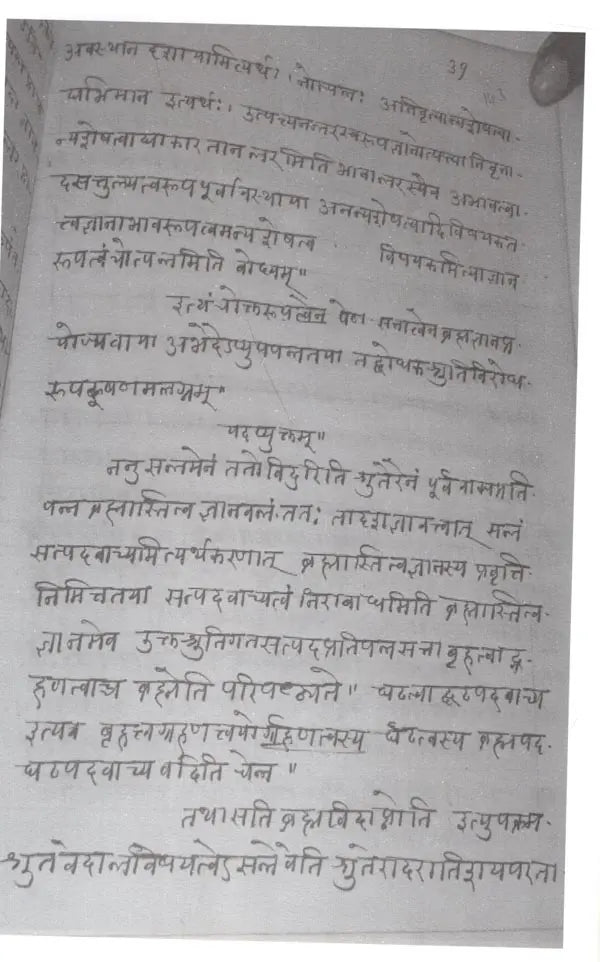 अवस्थान दशायामित्यर्थः। नोत्पन्नः अनिवृत्तान्यशेषत्वा- 39
भिमान इत्यर्थः। उत्पत्त्यनन्तरस्वरूपज्ञानोत्पत्त्या निवृत्ता-
न्यशेषत्वाद्याकार तानन्तरमिति भावान्तरस्यैव अभावत्वा-
दसत्तुल्यत्वरूपपूर्वावस्थाया अनन्यशेषत्वादिविषयकत-
त्त्वज्ञानाभावरूपत्वमन्यशेषत्व विषयकमिथ्याज्ञान
रूपत्वं चोत्पन्नमिति बोध्यम्॥
इत्थं चोक्तरूपत्वेन सत्तात्वेन ब्रह्मज्ञानप्र-
योज्यताया अभेदेऽप्युपपन्नतया तद्बोधकश्रुतिविरोध-
रूपदूषणमलग्नम्॥
यदप्युक्तम्॥
ननु सन्तमेनं ततो विदुरिति श्रुतेरेनं पूर्ववाक्यप्रति-
पन्न ब्रह्मास्तित्व ज्ञानवन्तं ततः तादृशज्ञानवत्त्वात् सन्तं
सत्पदवाच्यमित्यर्थकरणात् ब्रह्मास्तित्वज्ञानस्य प्रवृत्ति-
निमित्ततया सत्पदवाच्यत्वं निराबाधमिति ब्रह्मास्तित्व-
ज्ञानमेव उक्तश्रुतिगतसत्पदप्रतिपन्नसत्ता बृहत्वाद्बृ-
हणत्वाच्च ब्रह्मेति परिपठ्यते॥ घटत्वाद्घटपदवाच्य
इत्यत्र बृहत्त्वग्रहणत्वयोर्ग्रहणत्वस्य घटत्वस्य ब्रह्मपद-
घटपदवाच्य वदिति चेन्न॥
तथासति ब्रह्मविदाप्नोति इत्युपक्रम-
श्रुतवेदान्तविषयत्वेऽसन्नेवेति श्रुतेरादरातिशयपरता